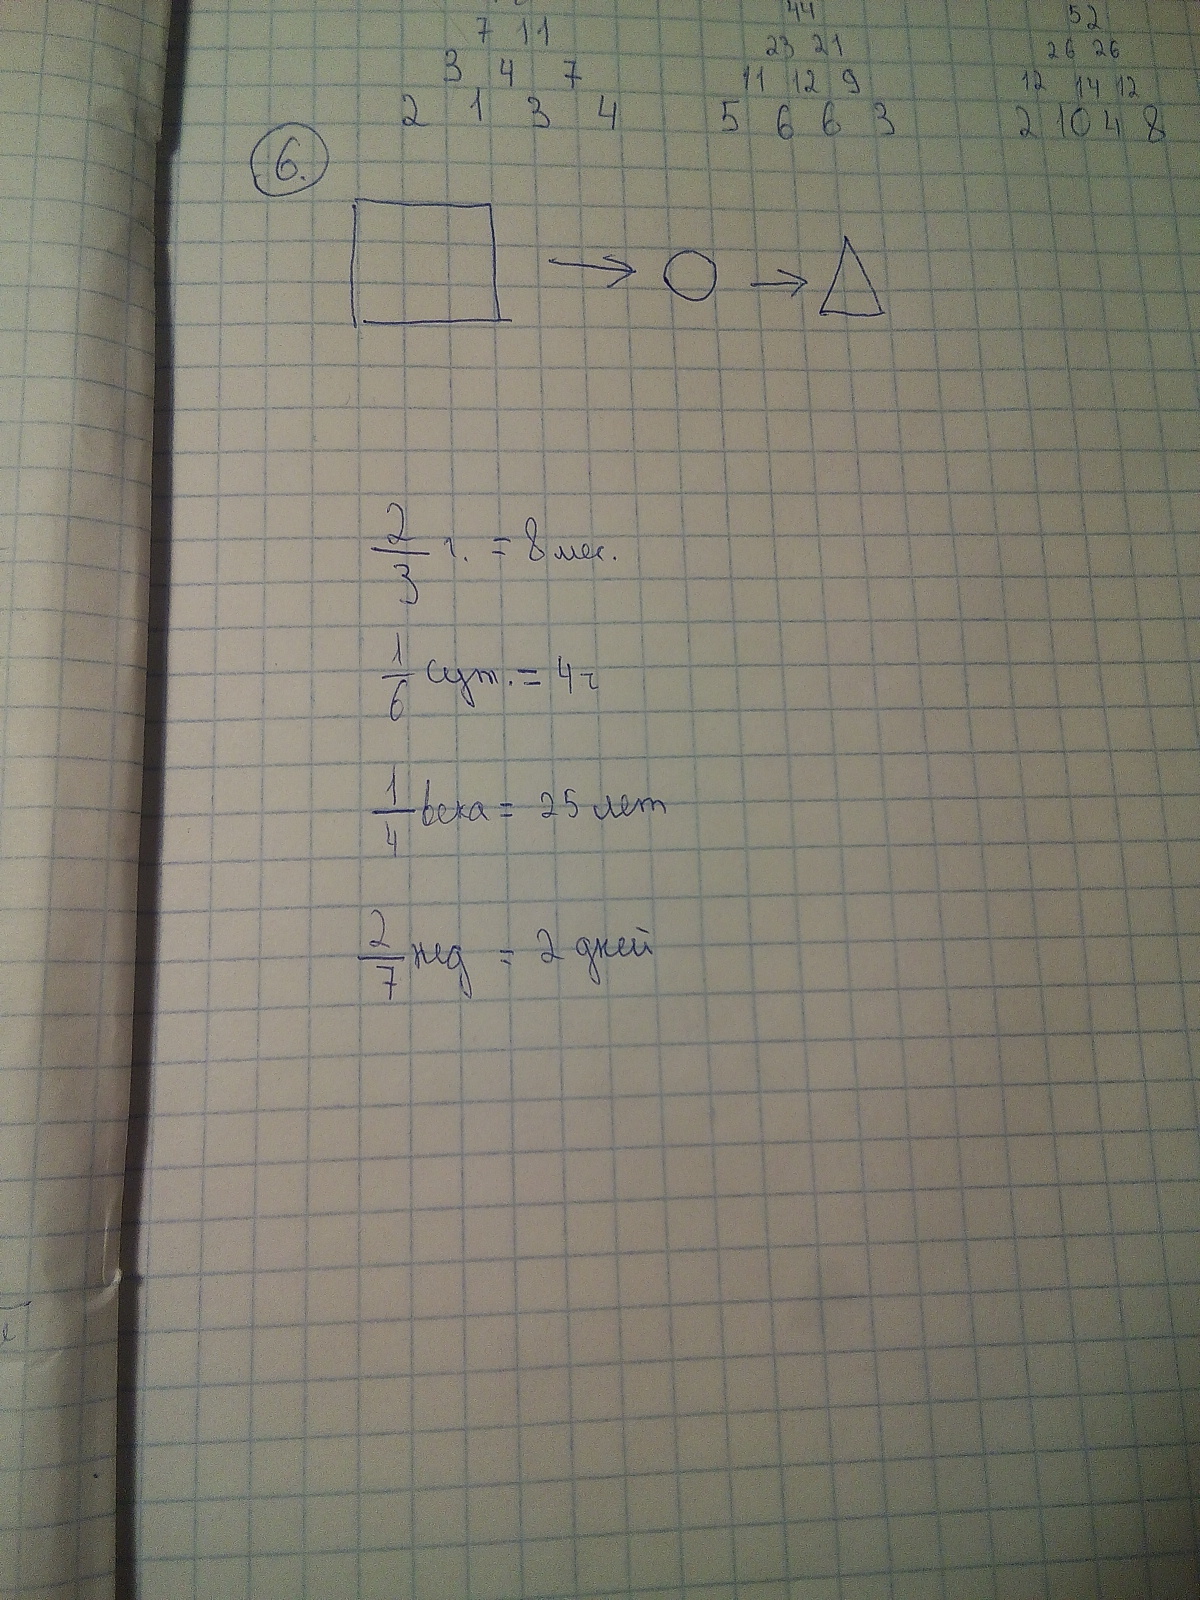 44 52
7 11 23 21 26 26
3 4 7 11 12 9 12 14 12
2 1 3 4 5 6 6 3 2 10 4 8
6.
2/3 г. = 8 мес.
1/6 сут. = 4 ч
1/4 века = 25 лет
2/7 нед = 2 дней